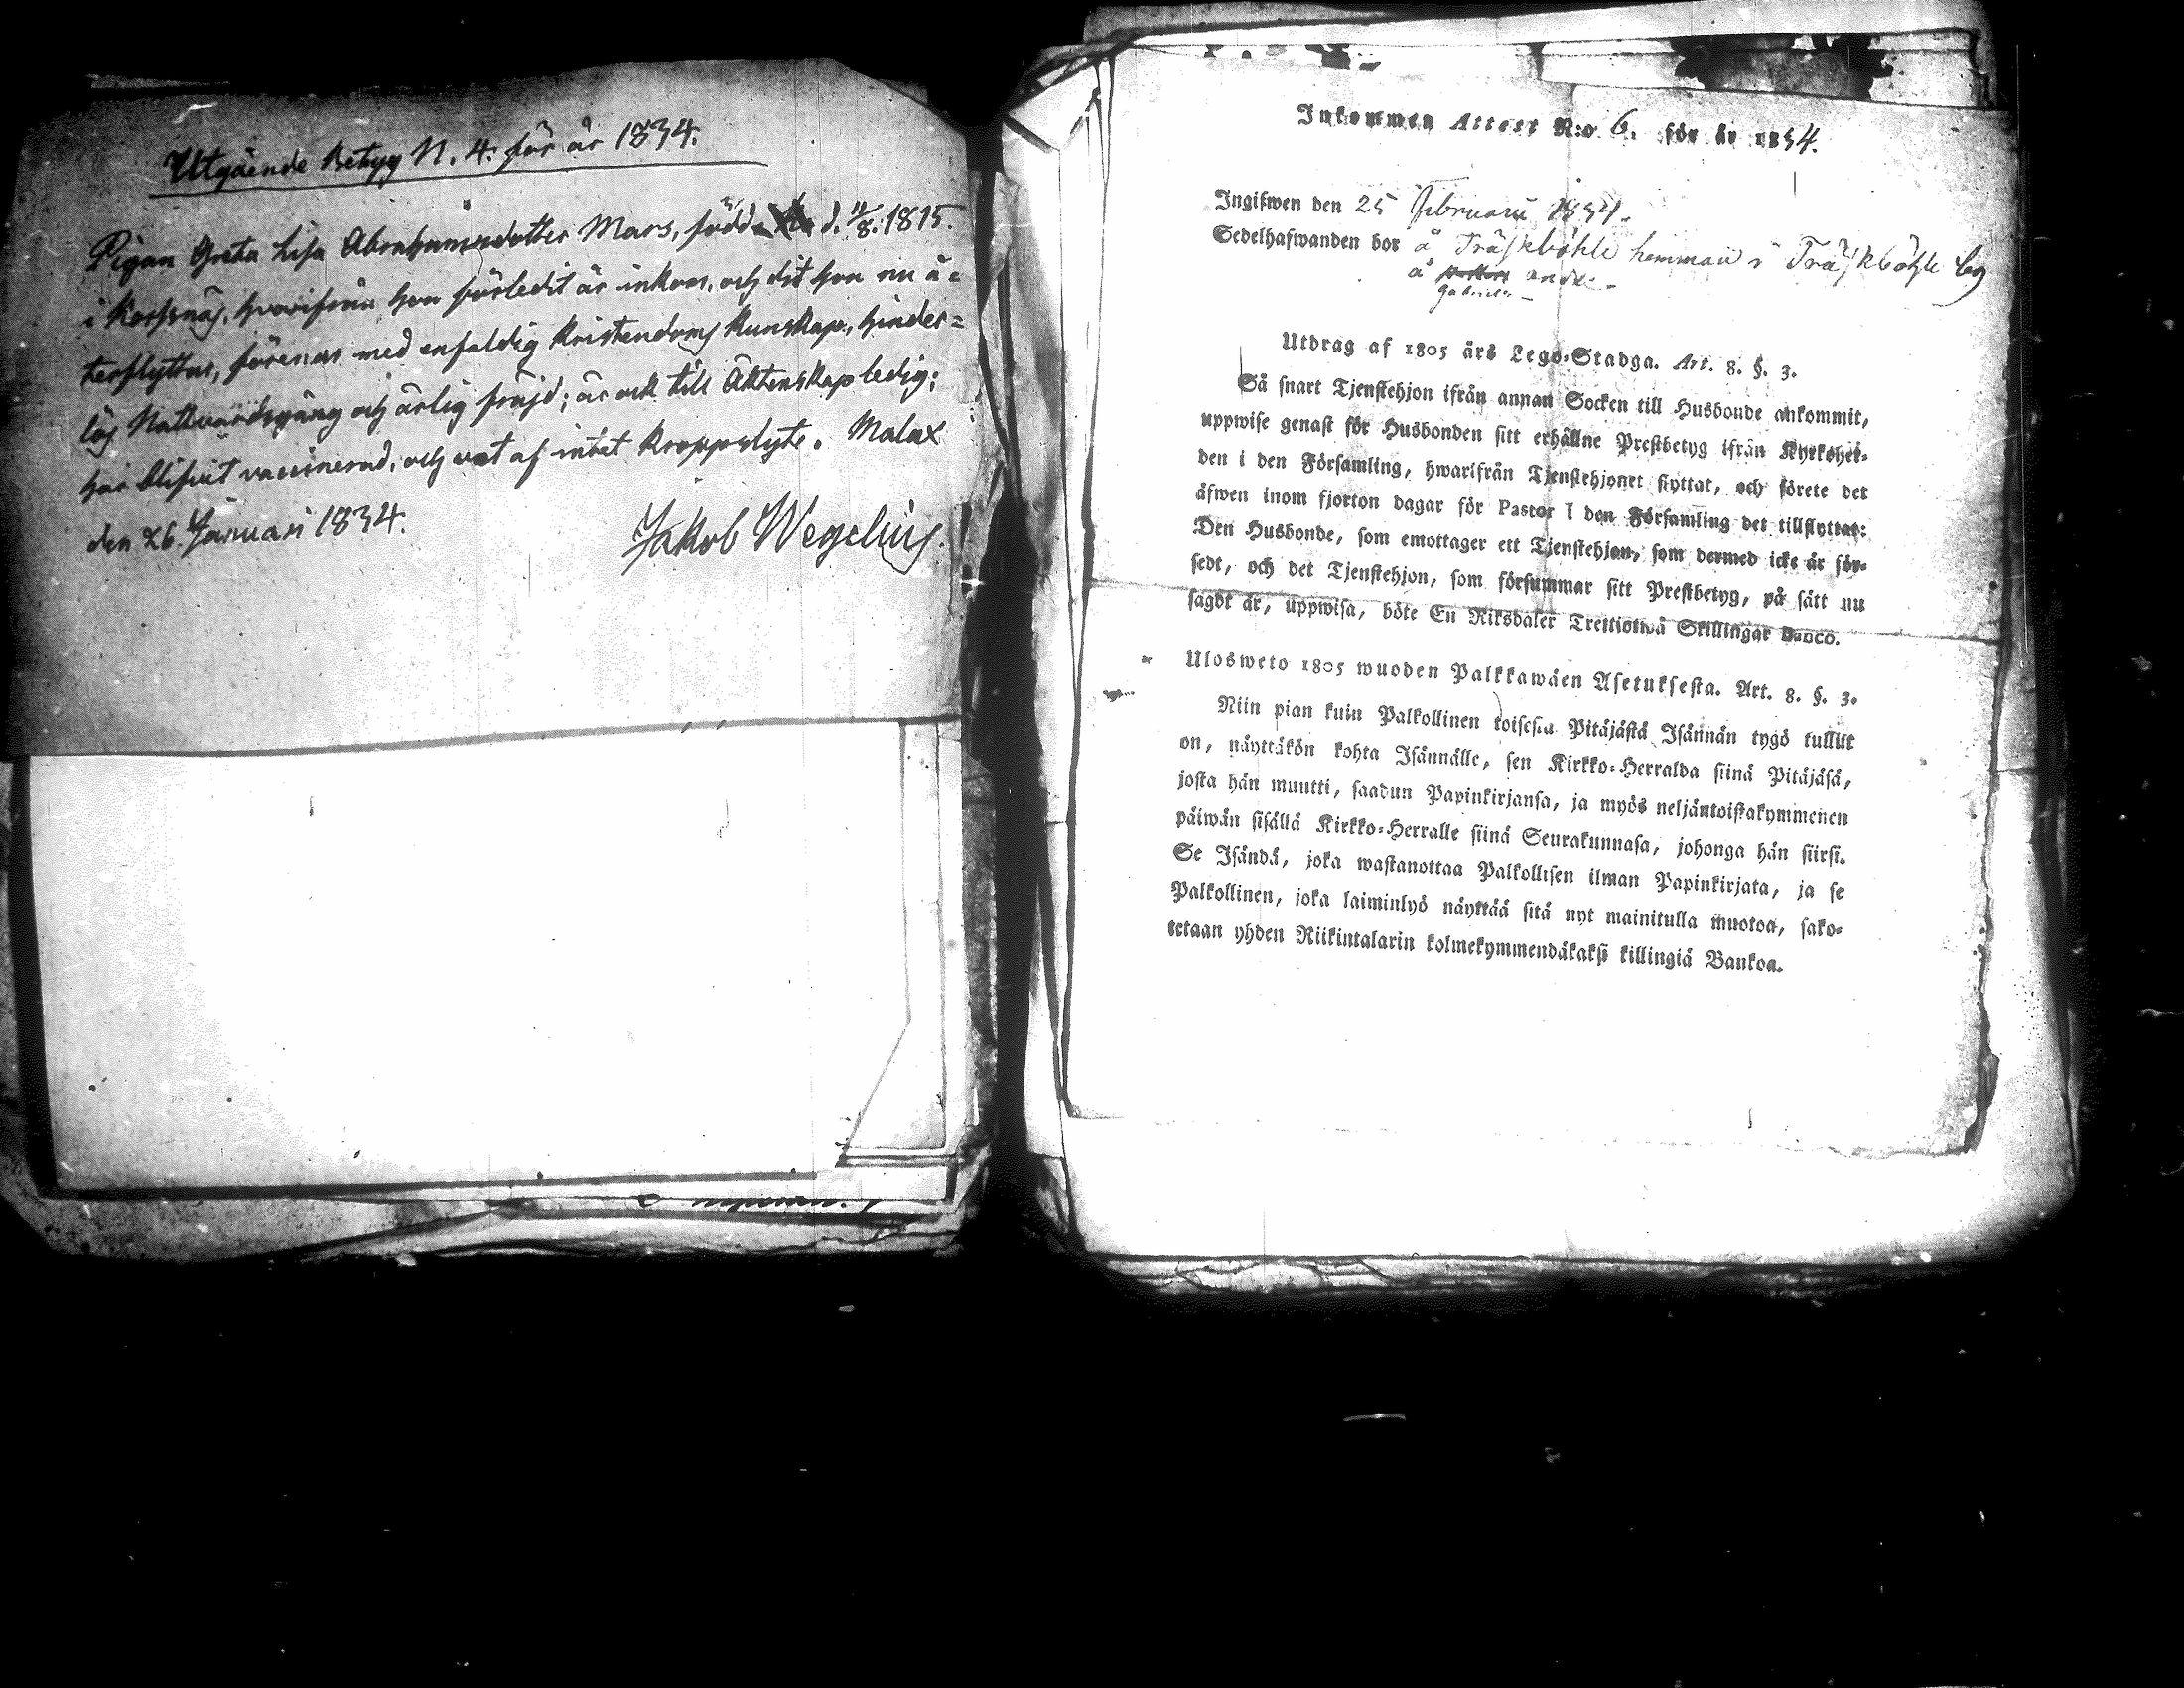 Utgående Betyg N. 4. för år 1834.
Pigan Greta Lisa Abrahamsdotter Mars, född d. 11/8. 1815.
i Korsnäs, hvarifrån hon förledit år inkom, och dit hon nu å=
terflyttar, förenar med enfaldig Kristendoms kunskap, hinder=
lös Nattvardsgång och ärlig fräjd; är ock till Äktenskap ledig;
har blifvit vaccinerad, och vet af intet kroppslyte. Malax
den 26. Januari 1834.
Jakob Wegelius.
Inkommen Attest N:o 6. för år 1834.
Ingifwen den 25 Februarii 1834.
Sedelhafwanden bor å Träskböhle hemman i Träskböhle by
å
Gabriels
Utdrag af 1805 års Lego-Stadga. Art. 8. §. 3.
Så snart Tjenstehjon ifrån annan Socken till Husbonde ankommit,
uppwise genast för Husbonden sitt erhållne Prestbetyg ifrån Kyrkoher-
den i den Församling, hwarifrån Tjenstehjonet flyttat, och förete det
äfwen inom fjorton dagar för Pastor i den Församling det tillflyttat:
Den Husbonde, som emottager ett Tjenstehjon, som dermed icke är för-
sedt, och det Tjenstehjon, som försummar sitt Prestbetyg, på sätt nu
sagdt är, uppwisa, böte En Riksdaler Trettiotwå Skillingar Banco.
Ulosweto 1805 wuoden Palkkawäen Asetuksesta. Art. 8. §. 3.
Niin pian kuin Palkollinen toisesta Pitäjästä Isännän tygö tullut
on, näyttäkön kohta Isännälle, sen Kirkko-Herralda siinä Pitäjäsä,
josta hän muutti, saadun Papinkirjansa, ja myös neljäntoistakymmenen
päiwän sisällä Kirkko-Herralle siinä Seurakunnasa, johonga hän siirsi.
Se Isändä, joka wastanottaa Palkollisen ilman Papinkirjata, ja se
Palkollinen, joka laiminlyö näyttää sitä nyt mainitulla muotoa, sako-
tetaan yhden Riikintalarin kolmekymmendäkaksi killingiä Bankoa.